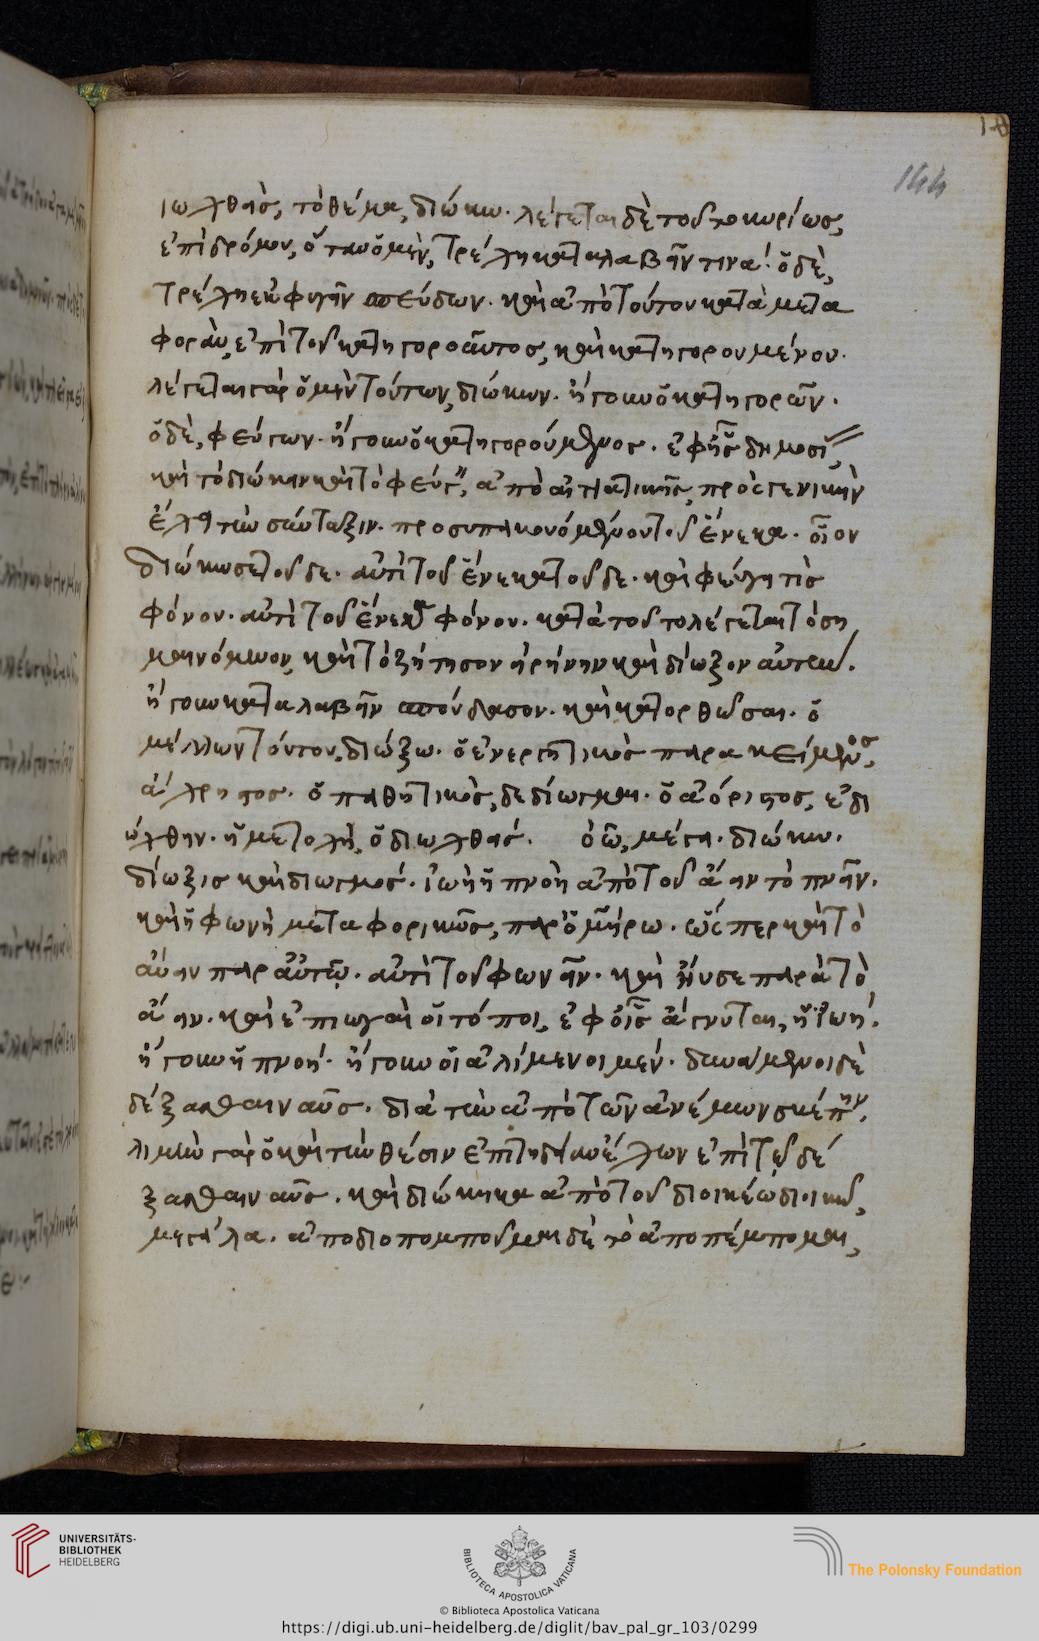 144
ιωχθείς, τὸ θέμα, διώκω. λέγεται δὲ τοῦτο κυρίως,
ἐπὶ δρόμου, ὅταν ὁ μὲν, τρέχη καταλαβεῖν τινα. ὁ δὲ,
τρέχη ἐκφυγεῖν σπεύδων. καὶ ἀπὸ τούτου κατὰ μετα
φορὰν, ἐπὶ τοῦ κατηγοροῦντος, καὶ κατηγορουμένου.
λέγεται γὰρ ὁ μὲν τούτων, διώκων. ἤγουν ὁ κατηγορῶν.
ὁ δὲ, φεύγων. ἤγουν ὁ κατηγορούμενος. ἐφ' ἧς σημασί
καὶ τὸ διώκειν καὶ τὸ φεύγ, ἀπὸ αἰτιατικῆς, πρὸς γενικὴν
ἔχει τὴν σύνταξιν. προσυπακουόμενον τοῦ ἕνεκα. οἷον
διώκω σε τοῦδε. ἀντὶ τοῦ ἕνεκα τοῦδε. καὶ φεύγει τίς
φόνου. ἀντὶ τοῦ ἕνεκα φόνου. κατὰ τοῦτο λέγεται τὸ ση
μαινόμενον, καὶ τὸ ζήτησον εἰρήνην καὶ δίωξον αὐτήν.
ἤγουν καταλαβεῖν σπούδασον. καὶ κατορθῶσαι. ὁ
μέλλων τούτου, διώξω. ὁ ἐνεργητικὸς παρακείμενος,
ἄχρηστος. ὁ παθητικὸς, δεδίωγμαι. ὁ ἀόριστος, ἐδι
ώχθην. ἡ μετοχὴ, ὁ διωχθείς. μέγα. διώκω.
δίωξις καὶ διωγμός. ἰωὴ ἡ πνοὴ ἀπὸ τοῦ ἄειν τὸ πνεῖν.
καὶ ἡ φωνὴ μεταφορικῶς, παρ' ὁμήρω. ὥσπερ καὶ τὸ
αὔειν παρ' αὐτῶ. ἀντὶ τοῦ φωνεῖν. καὶ ἤυσε παρὰ τὸ
ἄειν. καὶ ἐπιωγαὶ οἱ τόποι, ἐφ' οἷς ἄγνυται, ἡ ἰωή.
ἤγουν ἡ πνοή. ἤγουν οἱ ἀλίμενοι μέν. δυνάμενοι δὲ
δέξασθαι ναῦς. διὰ τὴν ἀπὸ τῶν ἀνέμων σκέπην.
λιμὴν γὰρ ὁ καὶ τὴν θέσιν ἐπιτηδείαν ἔχων ἐπὶ τῶ δέ
ξασθαι ναῦς. καὶ διώκηκα ἀπὸ τοῦ διοικέω διοικῶ,
μεγάλα. ἀποδιοπομποῦμαι δὲ τὸ ἀποπέμπομαι,
UNIVERSITÄTS-
BIBLIOTHEK
HEIDELBERG
BIBLIOTECA APOSTOLICA VATICANA
The Polonsky Foundation
© Biblioteca Apostolica Vaticana
https://digi.ub.uni-heidelberg.de/diglit/bav_pal_gr_103/0299